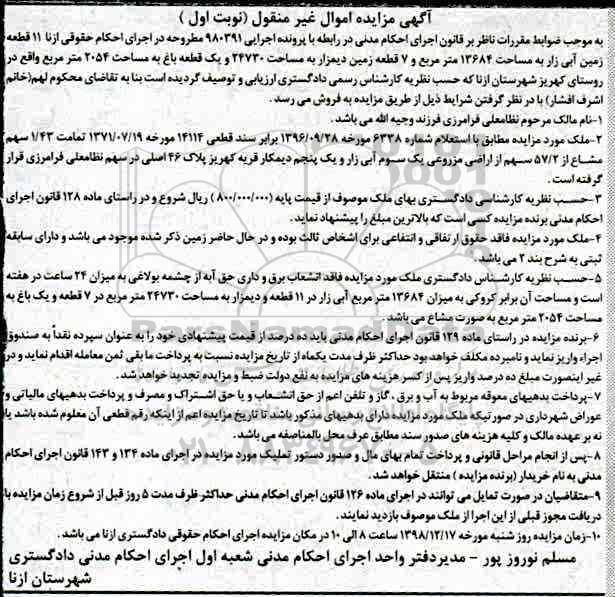 آگهی مزایده اموال غیر منقول (نوبت اول )
به موجب ضوابط مقررات ناظر بر قانون اجرای احکام مدنی در رابطه با پرونده اجرایی ۹۸۰۳۹۱ مطروحه در اجرای احکام حقوقی ازنا ۱۱ قطعه
زمین آبی زار به مساحت ۱۳۶۸۴ متر مربع و ۷ قطعه زمین دیمزار به مساحت ۲۴۷۳۰ و یک قطعه باغ به مساحت ۲۰۵۴ متر مربع واقع در
روستای کهریز شهرستان ازنا که حسب نظریه کارشناس رسمی دادگستری ارزیابی و توصیف گردیده است بنا به تقاضای محکوم لهم(خانم
اشرف افشار) با در نظر گرفتن شرایط ذیل از طریق مزایده به فروش می رسد .
۱-نام مالک مرحوم نظامعلی فرامرزی فرزند وجیه الله می باشد .
۲-ملک مورد مزایده مطابق با استعلام شماره ۶۳۳۸ مورخه ۱۳۹۶/۰۹/۲۸ برابر سند قطعی ۱۴۱۱۴ مورخه ۱۳۷۱/۰۷/۱۹ تمامت ۱/۴۳ سهم
مشاع از ۵۷/۲ سهم از اراضی مزروعی یک سوم آبی زار و یک پنجم دیمکار قریه کهریز پلاک ۴۶ اصلی در سهم نظامعلی فرامرزی قرار
گرفته است .
۳-حسب نظریه کارشناسی دادگستری بهای ملک موصوف از قیمت پایه (۸۰۰/۰۰۰/۰۰۰ ) ریال شروع و در راستای ماده ۱۲۸ قانون اجرای
احکام مدنی برنده مزایده کسی است که بالاترین مبلغ را پیشنهاد نماید .
۴-ملک مورد مزایده فاقد حقوق ارتفاقی و انتفاعی برای اشخاص ثالث بوده و در حال حاضر زمین ذکر شده موجود می باشد و دارای سابقه
ثبتی به شرح بند ۲ می باشد .
۵-حسب نظریه کارشناس دادگستری ملک مورد مزایده فاقد انشعاب برق و داری حق آبه از چشمه بولاغی به میزان ۲۴ ساعت در هفته
است و مساحت آن برابر کروکی به میزان ۱۳۶۸۴ متر مربع آبی زار در ۱۱ قطعه و دیمزار به مساحت ۲۴۷۳۰ متر مربع در ۷ قطعه و یک باغ به
مساحت ۲۰۵۴ متر مربع به صورت مشاع می باشد .
۶-برنده مزایده در راستای ماده ۱۲۹ قانون اجرای احکام مدنی باید ده درصد از قیمت پیشنهادی خود را به عنوان سپرده نقداً به صندوق
اجراء واریز نماید و نامبرده مکلف خواهد بود حداکثر ظرف مدت یکماه از تاریخ مزایده نسبت به پرداخت ما بقی ثمن معامله اقدام نماید و در
غیر اینصورت مبلغ ده درصد واریز پس از کسر هزینه های مزایده به نفع دولت ضبط و مزایده تجدید خواهد شد .
۷-پرداخت بدهیهای معوقه مربوط به آب و برق ، گاز و تلفن اعم از حق انشعاب و یا حق اشتراک و مصرف و پرداخت بدهیهای مالیاتی و
عوارض شهرداری در صورتیکه ملک مورد مزایده دارای بدهیهای مذکور باشد تا تاریخ مزایده اعم از اینکه رقم قطعی آن معلوم شده باشد یا
نه بر عهده مالک و کلیه هزینه های صدور سند مطابق عرف محل بالمناصفه می باشد .
۸-پس از انجام مراحل قانونی و پرداخت تمام بهای مال و صدور دستور تملیک مورد مزایده در اجرای ماده ۱۳۴ و ۱۴۳ قانون اجرای احکام
مدنی به نام خریدار (برنده مزایده ) منتقل خواهد شد .
۹-متقاضیان در صورت تمایل می توانند در اجرای ماده ۱۲۶ قانون اجرای احکام مدنی حداکثر ظرف مدت ۵ روز قبل از شروع زمان مزایده با
دریافت مجوز قبلی از این اجرا از ملک موصوف بازدید نمایند .
۱۰-زمان مزایده روز شنبه مورخه ۱۳۹۸/۱۲/۱۷ ساعت ۸ الی ۱۰ در مکان مزایده اجرای احکام حقوقی دادگستری ازنا می باشد .
مسلم نوروز پور - مدیردفتر واحد اجرای احکام مدنی شعبه اول اجرای احکام مدنی دادگستری
شهرستان ازنا